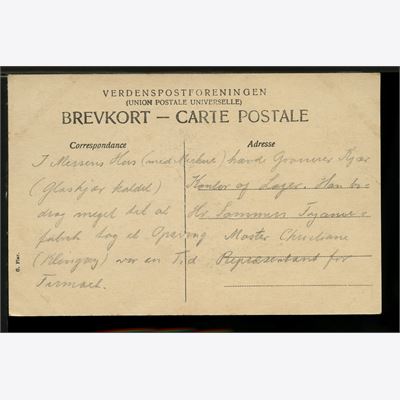 VERDENSPOSTFORENINGEN
(UNION POSTALE UNIVERSELLE)
BREVKORT — CARTE POSTALE
Correspondance
Adresse
I Messens Hus (med havde Grosserer Kjær
(Glaskjær kaldet) Kontor og Lager. Han bi-
drog meget til at Hr
fabrik tog et Opsving Moster Christiane
(Klengay) var en Tid Repræsentant for
Firmaet.